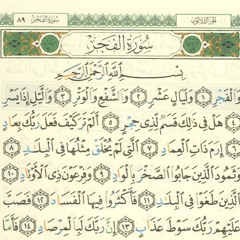 الجزء الثلاثون سُورَةُ الفَجْرِ ٨٩
سُورَةُ الفَجْرِ
بِسْمِ ٱللَّهِ ٱلرَّحْمَٰنِ ٱلرَّحِيمِ
وَٱلْفَجْرِ ١ وَلَيَالٍ عَشْرٍ ٢ وَٱلشَّفْعِ وَٱلْوَتْرِ ٣ وَٱلَّيْلِ إِذَا يَسْرِ
٤ هَلْ فِى ذَٰلِكَ قَسَمٌ لِّذِى حِجْرٍ ٥ أَلَمْ تَرَ كَيْفَ فَعَلَ رَبُّكَ بِعَادٍ
٦ إِرَمَ ذَاتِ ٱلْعِمَادِ ٧ ٱلَّتِى لَمْ يُخْلَقْ مِثْلُهَا فِى ٱلْبِلَٰدِ ٨
وَثَمُودَ ٱلَّذِينَ جَابُوا۟ ٱلصَّخْرَ بِٱلْوَادِ ٩ وَفِرْعَوْنَ ذِى ٱلْأَوْتَادِ ١٠
ٱلَّذِينَ طَغَوْا۟ فِى ٱلْبِلَٰدِ ١١ فَأَكْثَرُوا۟ فِيهَا ٱلْفَسَادَ ١٢ فَصَبَّ
عَلَيْهِمْ رَبُّكَ سَوْطَ عَذَابٍ ١٣ إِنَّ رَبَّكَ لَبِٱلْمِرْصَادِ ١٤ فَأَمَّا